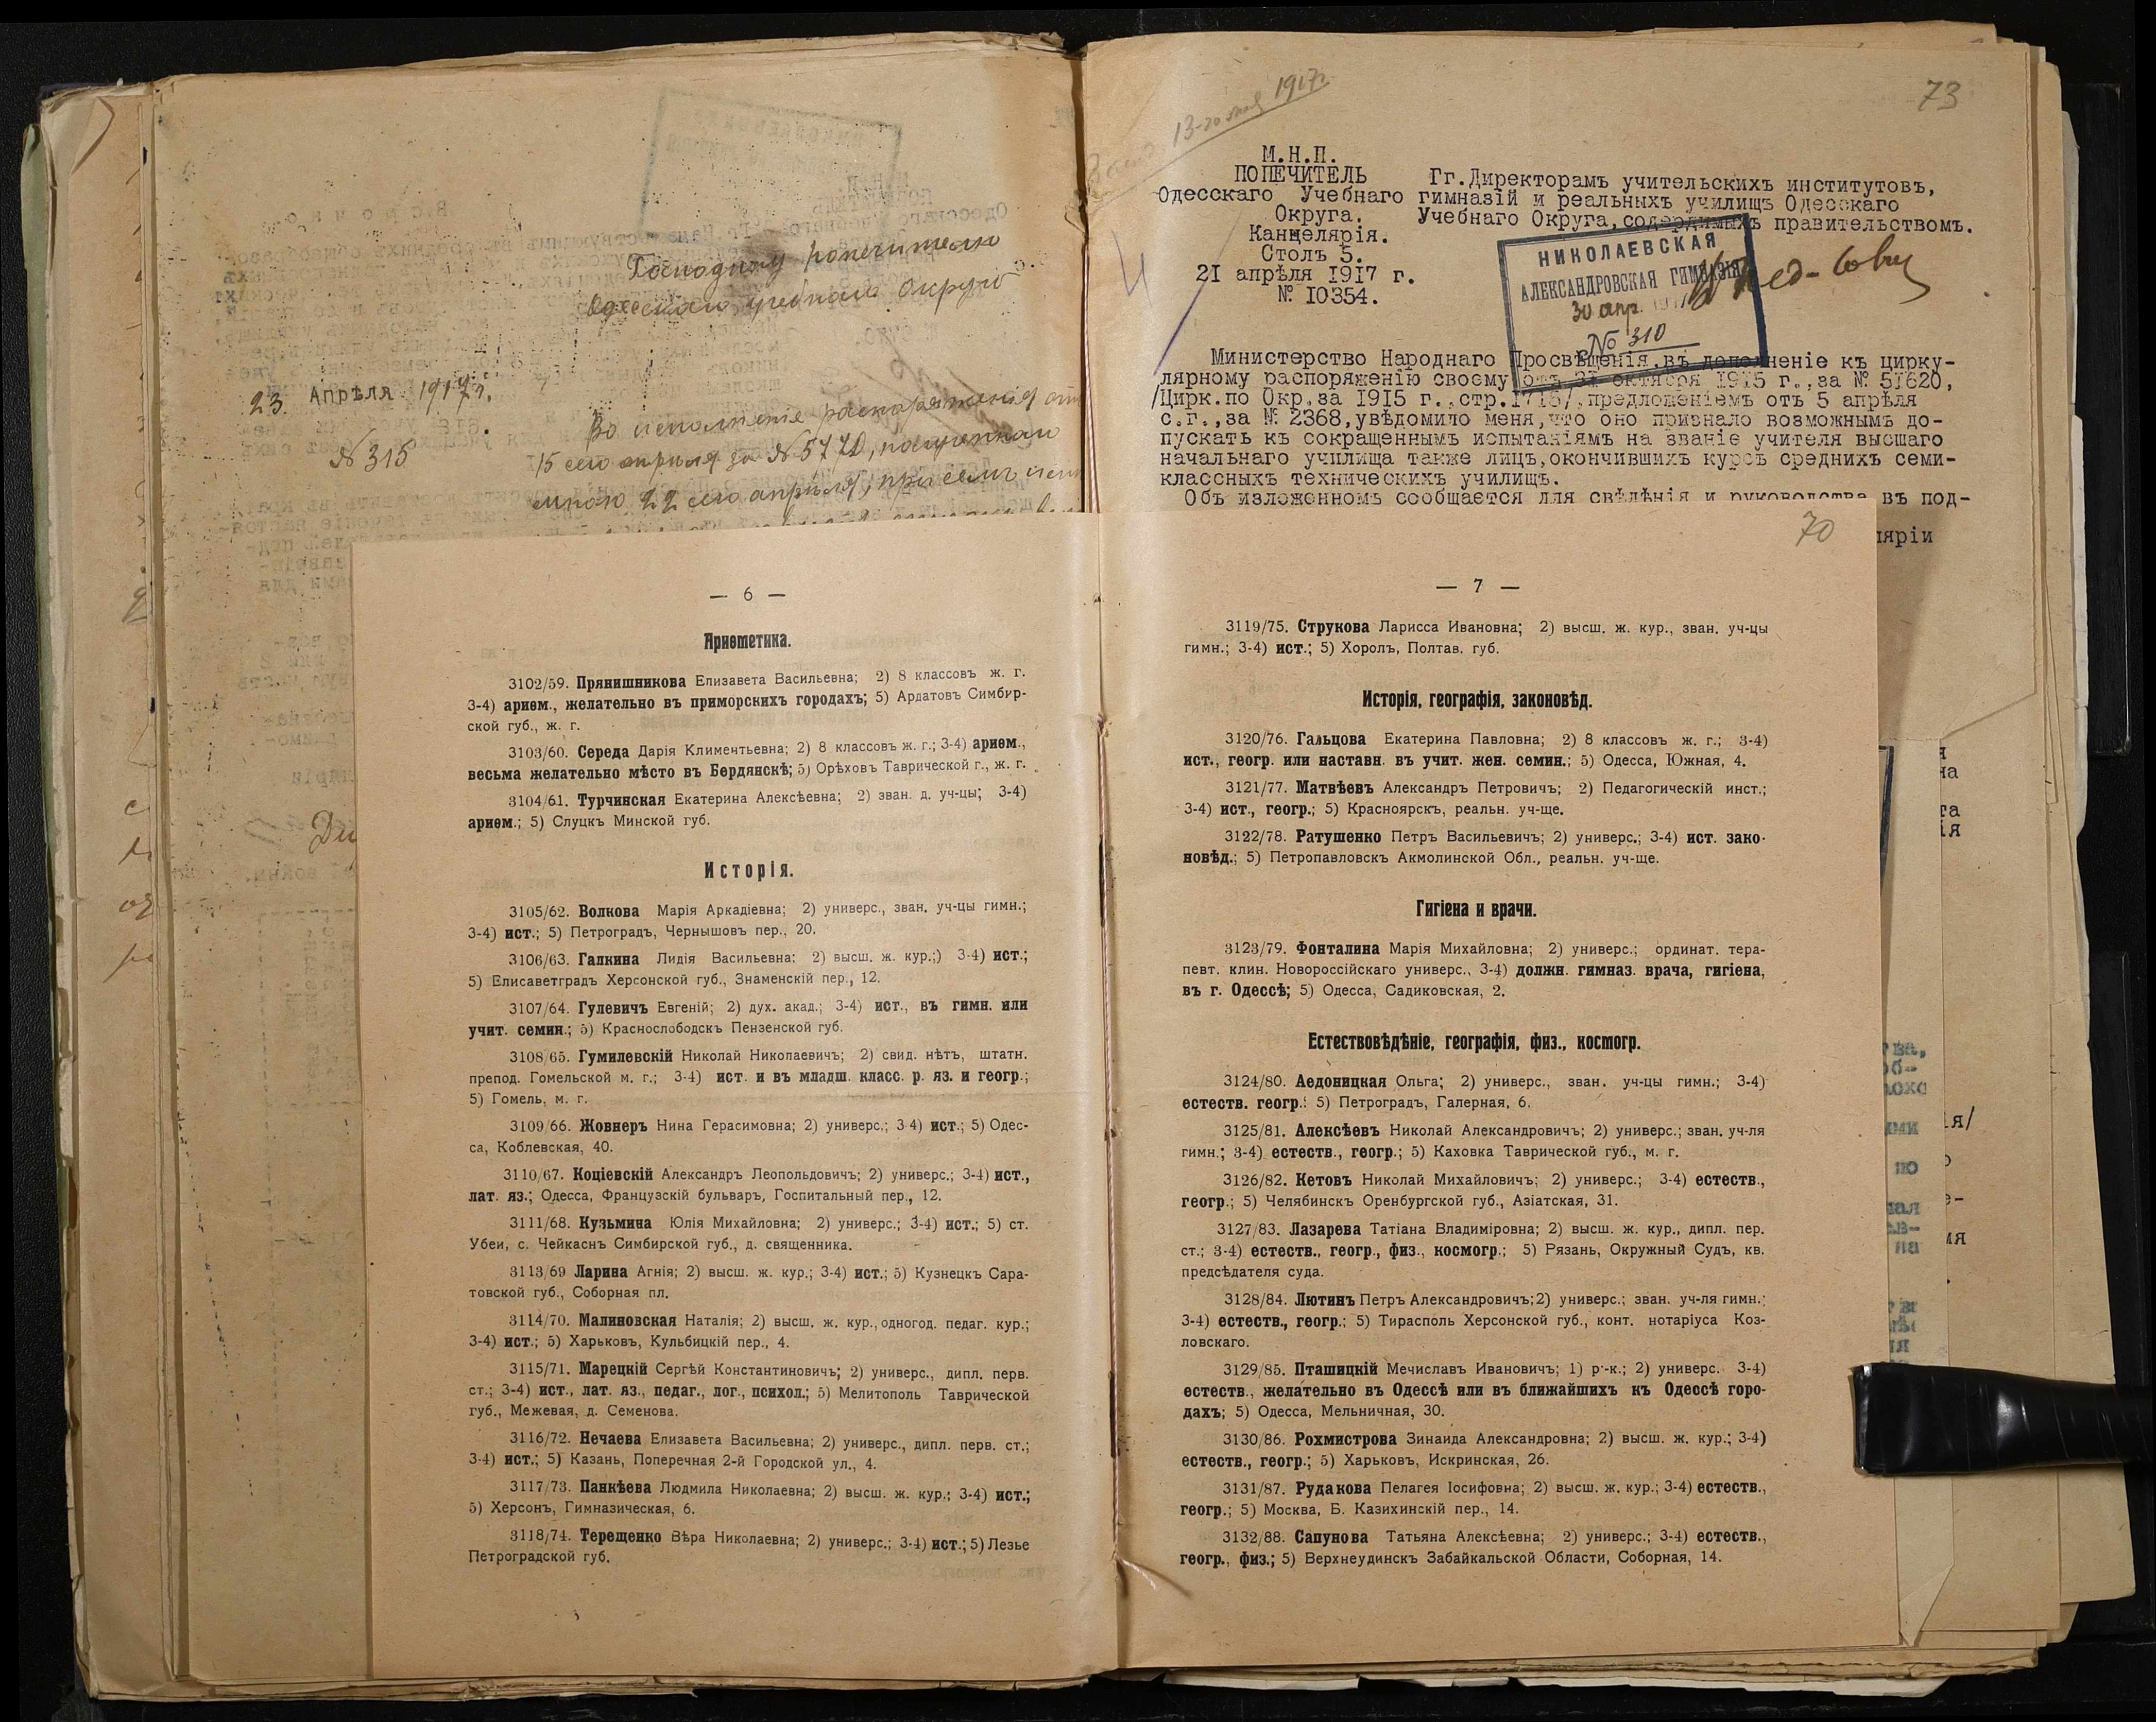 Господину попечителю
Одесскаго учебнаго округа
23 Апрѣля 1917 г.
№ 315
Во исполненіе распоряженія от
15 сего апрѣля за № 5770, полученнаго
мною 22 сего апрѣля, при семъ
— 6 —
Ариѳметика.
3102/59. Прянишникова Елизавета Васильевна; 2) 8 классовъ ж. г.
3-4) ариѳм., желательно въ приморскихъ городахъ; 5) Ардатовъ Симбир-
ской губ., ж. г.
3103/60. Середа Дарія Климентьевна; 2) 8 классовъ ж. г.; 3-4) ариѳм.,
весьма желательно мѣсто въ Бердянскѣ; 5) Орѣховъ Таврической г., ж. г.
3104/61. Турчинская Екатерина Алексѣевна; 2) зван. д. уч-цы; 3-4)
ариѳм.; 5) Слуцкъ Минской губ.
Исторія.
3105/62. Волкова Марія Аркадіевна; 2) универс., зван. уч-цы гимн.;
3-4) ист.; 5) Петроградъ, Чернышовъ пер., 20.
3106/63. Галкина Лидія Васильевна; 2) высш. ж. кур.;) 3-4) ист.;
5) Елисаветградъ Херсонской губ., Знаменскій пер., 12.
3107/64. Гулевичъ Евгеній; 2) дух. акад.; 3-4) ист., въ гимн. или
учит. семин.; 5) Краснослободскъ Пензенской губ.
3108/65. Гумилевскій Николай Николаевичъ; 2) свид. нѣтъ, штатн.
препод. Гомельской м. г.; 3-4) ист. и въ младш. класс. р. яз. и геогр.;
5) Гомель, м. г.
3109/66. Жовнеръ Нина Герасимовна; 2) универс.; 3 4) ист.; 5) Одес-
са, Коблевская, 40.
3110/67. Коціевскій Александръ Леопольдовичъ; 2) универс.; 3-4) ист.,
лат. яз.; Одесса, Французскій бульваръ, Госпитальный пер., 12.
3111/68. Кузьмина Юлія Михайловна; 2) универс.; 3-4) ист.; 5) ст.
Убеи, с. Чейкаснъ Симбирской губ., д. священника.
3113/69 Ларина Агнія; 2) высш. ж. кур.; 3-4) ист.; 5) Кузнецкъ Сара-
товской губ., Соборная пл.
3114/70. Малиновская Наталія; 2) высш. ж. кур., одногод. педаг. кур.;
3-4) ист.; 5) Харьковъ, Кульбицкій пер., 4.
3115/71. Марецкій Сергѣй Константиновичъ; 2) универс., дипл. перв.
ст.; 3-4) ист., лат. яз., педаг., лог., психол.; 5) Мелитополь Таврической
губ., Межевая, д. Семенова.
3116/72. Нечаева Елизавета Васильевна; 2) универс., дипл. перв. ст.;
3-4) ист.; 5) Казань, Поперечная 2-й Городской ул., 4.
3117/73. Панкѣева Людмила Николаевна; 2) высш. ж. кур.; 3-4) ист.;
5) Херсонъ, Гимназическая, 6.
3118/74. Терещенко Вѣра Николаевна; 2) универс.; 3-4) ист.; 5) Лезье
Петроградской губ.
13-го мая 1917г.
73
М.Н.П.
ПОПЕЧИТЕЛЬ
Одесскаго Учебнаго
Округа.
Канцелярія.
Столъ 5.
21 апрѣля 1917 г.
№ 10354.
Гг.Директорамъ учительскихъ институтовъ,
гимназій и реальныхъ училищъ Одесскаго
Учебнаго Округа,содержимыхъ правительствомъ.
НИКОЛАЕВСКАЯ
АЛЕКСАНДРОВСКАЯ ГИМНАЗІЯ
30 апр. 1917
№ 310
Министерство Народнаго Просвѣщенія,въ дополненіе къ цирку-
лярному распоряженію своему отъ 31 октября 1915 г.,за № 51620,
/Цирк.по Окр.за 1915 г.,стр.1715/,предложеніемъ отъ 5 апрѣля
с.г.,за № 2368,увѣдомило меня,что оно признало возможнымъ до-
пускать къ сокращеннымъ испытаніямъ на званіе учителя высшаго
начальнаго училища также лицъ,окончившихъ курсъ среднихъ семи-
классныхъ техническихъ училищъ.
Объ изложенномъ сообщается для свѣдѣнія и руководства въ под-
ляріи
70
— 7 —
3119/75. Струкова Ларисса Ивановна; 2) высш. ж. кур., зван. уч-цы
гимн.; 3-4) ист.; 5) Хоролъ, Полтав. губ.
Исторія, географія, законовѣд.
3120/76. Гальцова Екатерина Павловна; 2) 8 классовъ ж. г.; 3-4)
ист., геогр. или наставн. въ учит. жен. семин.; 5) Одесса, Южная, 4.
3121/77. Матвѣевъ Александръ Петровичъ; 2) Педагогическій инст.;
3-4) ист., геогр.; 5) Красноярскъ, реальн. уч-ще.
3122/78. Ратушенко Петръ Васильевичъ; 2) универс.; 3-4) ист. зако-
новѣд.; 5) Петропавловскъ Акмолинской Обл., реальн. уч-ще.
Гигіена и врачи.
3123/79. Фонталина Марія Михайловна; 2) универс.; ординат. тера-
певт. клин. Новороссійскаго универс., 3-4) должн. гимназ. врача, гигіена,
въ г. Одессѣ; 5) Одесса, Садиковская, 2.
Естествовѣдѣніе, географія, физ., костогр.
3124/80. Аедоницкая Ольга; 2) универс., зван. уч-цы гимн.; 3-4)
естеств. геогр.: 5) Петроградъ, Галерная, 6.
3125/81. Алексѣевъ Николай Александровичъ; 2) универс.; зван. уч-ля
гимн.; 3-4) естеств., геогр.; 5) Каховка Таврической губ., м. г.
3126/82. Кетовъ Николай Михайловичъ; 2) универс.; 3-4) естеств.,
геогр.; 5) Челябинскъ Оренбургской губ., Азіатская, 31.
3127/83. Лазарева Татіана Владиміровна; 2) высш. ж. кур., дипл. пер.
ст.; 3-4) естеств., геогр., физ., космогр.; 5) Рязань, Окружный Судъ, кв.
предсѣдателя суда.
3128/84. Лютинъ Петръ Александровичъ;2) универс.; зван. уч-ля гимн.;
3-4) естеств., геогр.; 5) Тирасполь Херсонской губ., конт. нотаріуса Коз-
ловскаго.
3129/85. Пташицкій Мечиславъ Ивановичъ; 1) р.-к.; 2) универс. 3-4)
естеств., желательно въ Одессѣ или въ ближайшихъ къ Одессѣ горо-
дахъ; 5) Одесса, Мельничная, 30.
3130/86. Рохмистрова Зинаида Александровна; 2) высш. ж. кур.; 3-4)
естеств., геогр.; 5) Харьковъ, Искринская, 26.
3131/87. Рудакова Пелагея Іосифовна; 2) высш. ж. кур.; 3-4) естеств.,
геогр.; 5) Москва, Б. Казихинскій пер., 14.
3132/88. Сапунова Татьяна Алексѣевна; 2) универс.; 3-4) естеств.,
геогр., физ.; 5) Верхнеудинскъ Забайкальской Области, Соборная, 14.